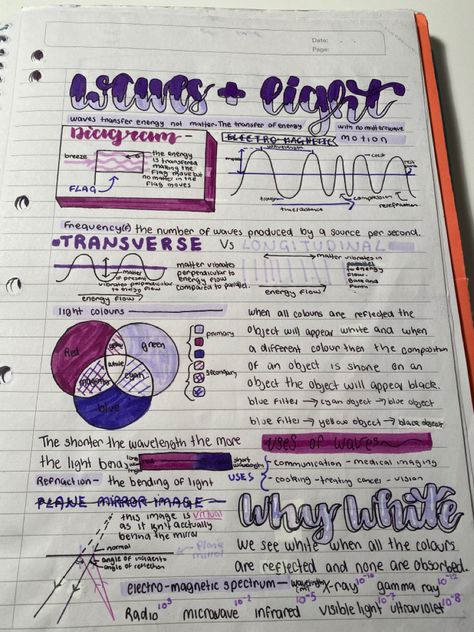 Date:
Page:
Waves + Light
waves transfer energy not matter-The transfer of energy with no matter
motion
Diagram-
breeze
FLAG
the energy
is transfered
making the
flag move but
no matter in the
flag moves
ELECTRO MAGNETIC
wavelength
crest
rest
trough
compression
rarefraction
time/distance
Frequency(F) the number of waves produced by a source per second.
-TRANSVERSE Vs LONGITUDINAL
matter
vibrates perpendicular
to energy flow
energy flow
matter vibrates
perpendicular to
energy flow
compared to parallel.
energy flow
matter vibrates in
parallel
to energy
flow.
light colours-
Red
green
blue
white
magenta
cyan
primary
secondary
when all colours are reflected the
object will appear white and when
a different colour then the composition
of an object is shone on an
object the object will appear black.
blue filter → cyan object → blue object
blue filter → yellow object → black object
The shorter the wavelength the more
the light bends
long
short
wavelengths
Refraction- the bending of light
USES OF WAVES
USES
communication - medical imaging
- cooking - treating cancer - vision
PLANE MIRROR IMAGE
this image is virtual
as it isn't acctually
behind the mirror
normal
plane
mirror
angle of incidence
angle of reflection
Why White
We see white when all the colours
are reflected and none are absorbed.
electro-magnetic spectrum- wavelength (m) X-ray 10⁻¹⁰ gamma ray 10⁻¹²
Radio 10³ microwave 10⁻² infrared 10⁻⁵ visible light 10⁻⁷ ultraviolet 10⁻⁸